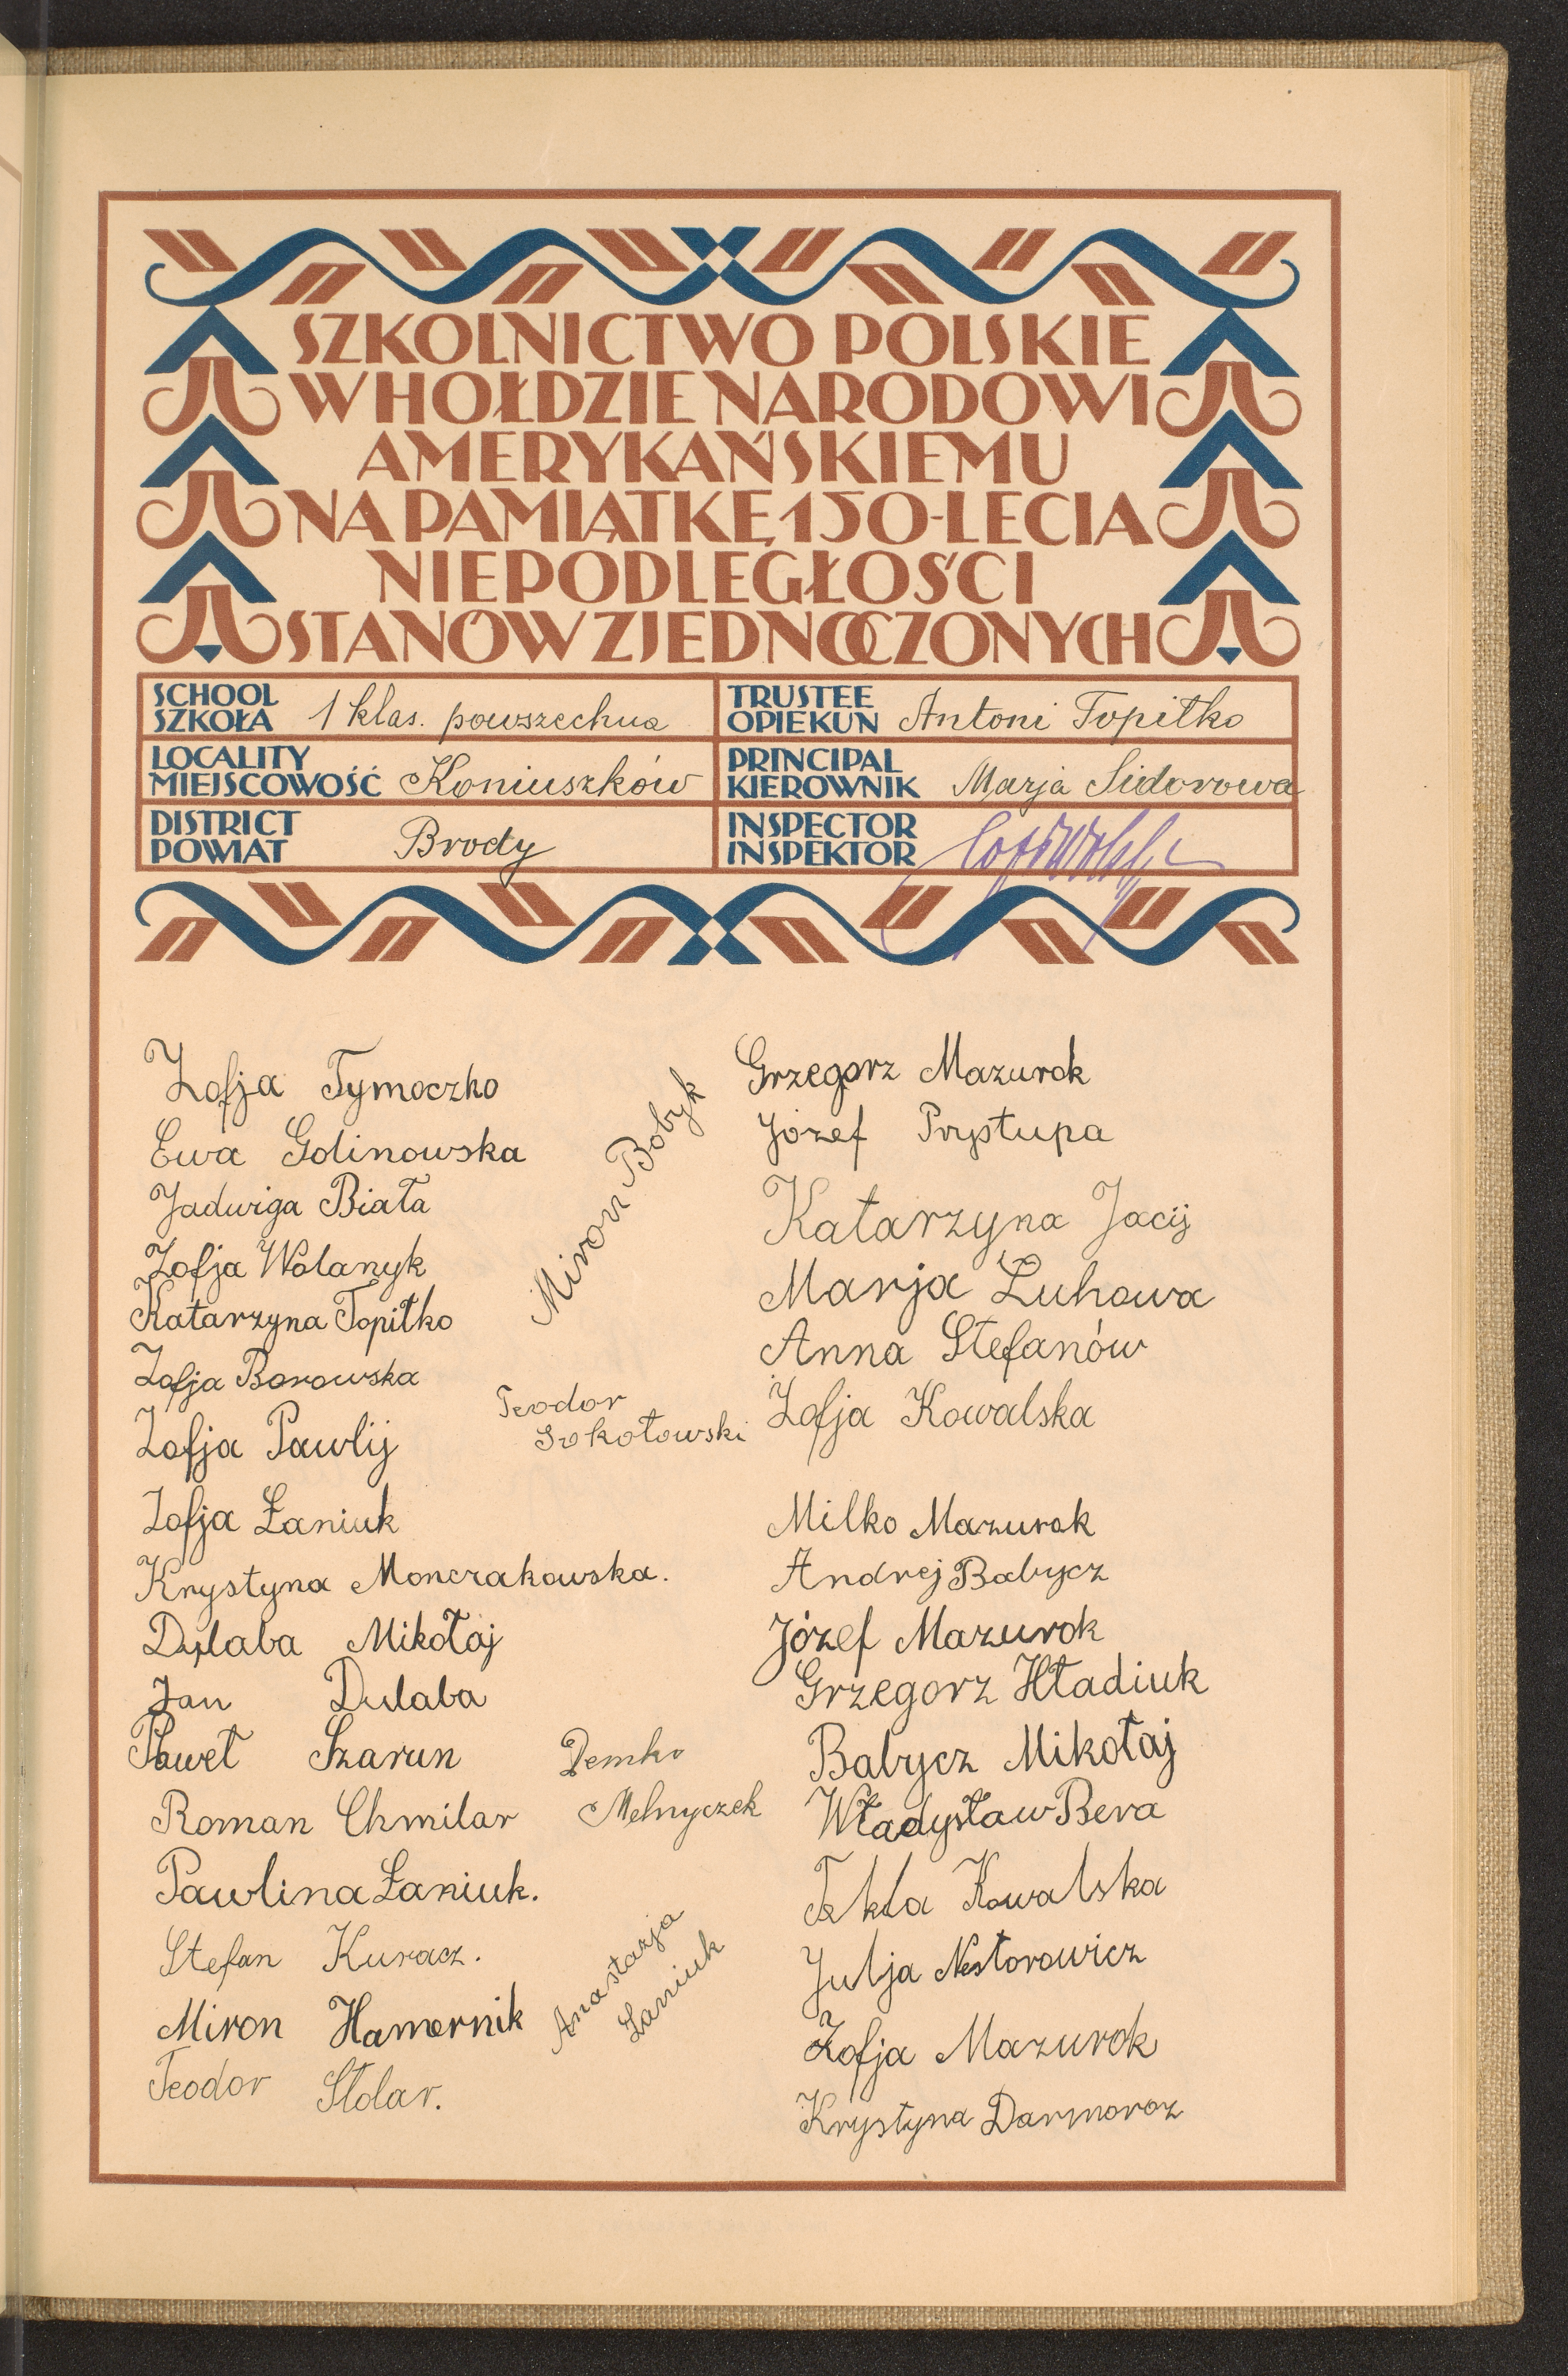 SZKOLNICTWO POLSKIE
W HOŁDZIE NARODOWI
AMERYKAŃSKIEMU
NA PAMIĄTKĘ 150-LECIA
NIEPODLEGŁOŚCI
STANÓW ZJEDNOCZONYCH
SCHOOL
SZKOŁA 1 klas. powszechna
TRUSTEE
OPIEKUN Antoni Topiłko
LOCALITY
MIEJSCOWOŚĆ Koniuszków
PRINCIPAL
KIEROWNIK Marja Sidorowa
DISTRICT
POWIAT Brody
INSPECTOR
INSPEKTOR
Zofja Tymoczko
Ewa Golinowska
Jadwiga Biała
Zofja Wolanyk
Katarzyna Topiłko
Zofja Borowska
Zofja Pawlij
Zofja Łaniuk
Krystyna Monczakowska.
Dulaba Mikołaj
Jan Dulaba
Paweł Szarun
Roman Chmilar
Pawlina Łaniuk.
Stefan Kuracz.
Miron Hamernik
Teodor Stolar.
Miron Bobyk
Teodor
Sokołowski
Demko
Melnyczek
Anastazja
Łaniuk
Grzegorz Mazurok
Józef Prystupa
Katarzyna Jacij
Marja Luhowa
Anna Stefanów
Zofja Kowalska
Milko Mazurok
Andrej Babycz
Józef Mazurok
Grzegorz Hładiuk
Babycz Mikołaj
Władysław Bera
Tekla Kowalska
Julja Nestorowicz
Zofja Mazurok
Krystyna Darmoroz